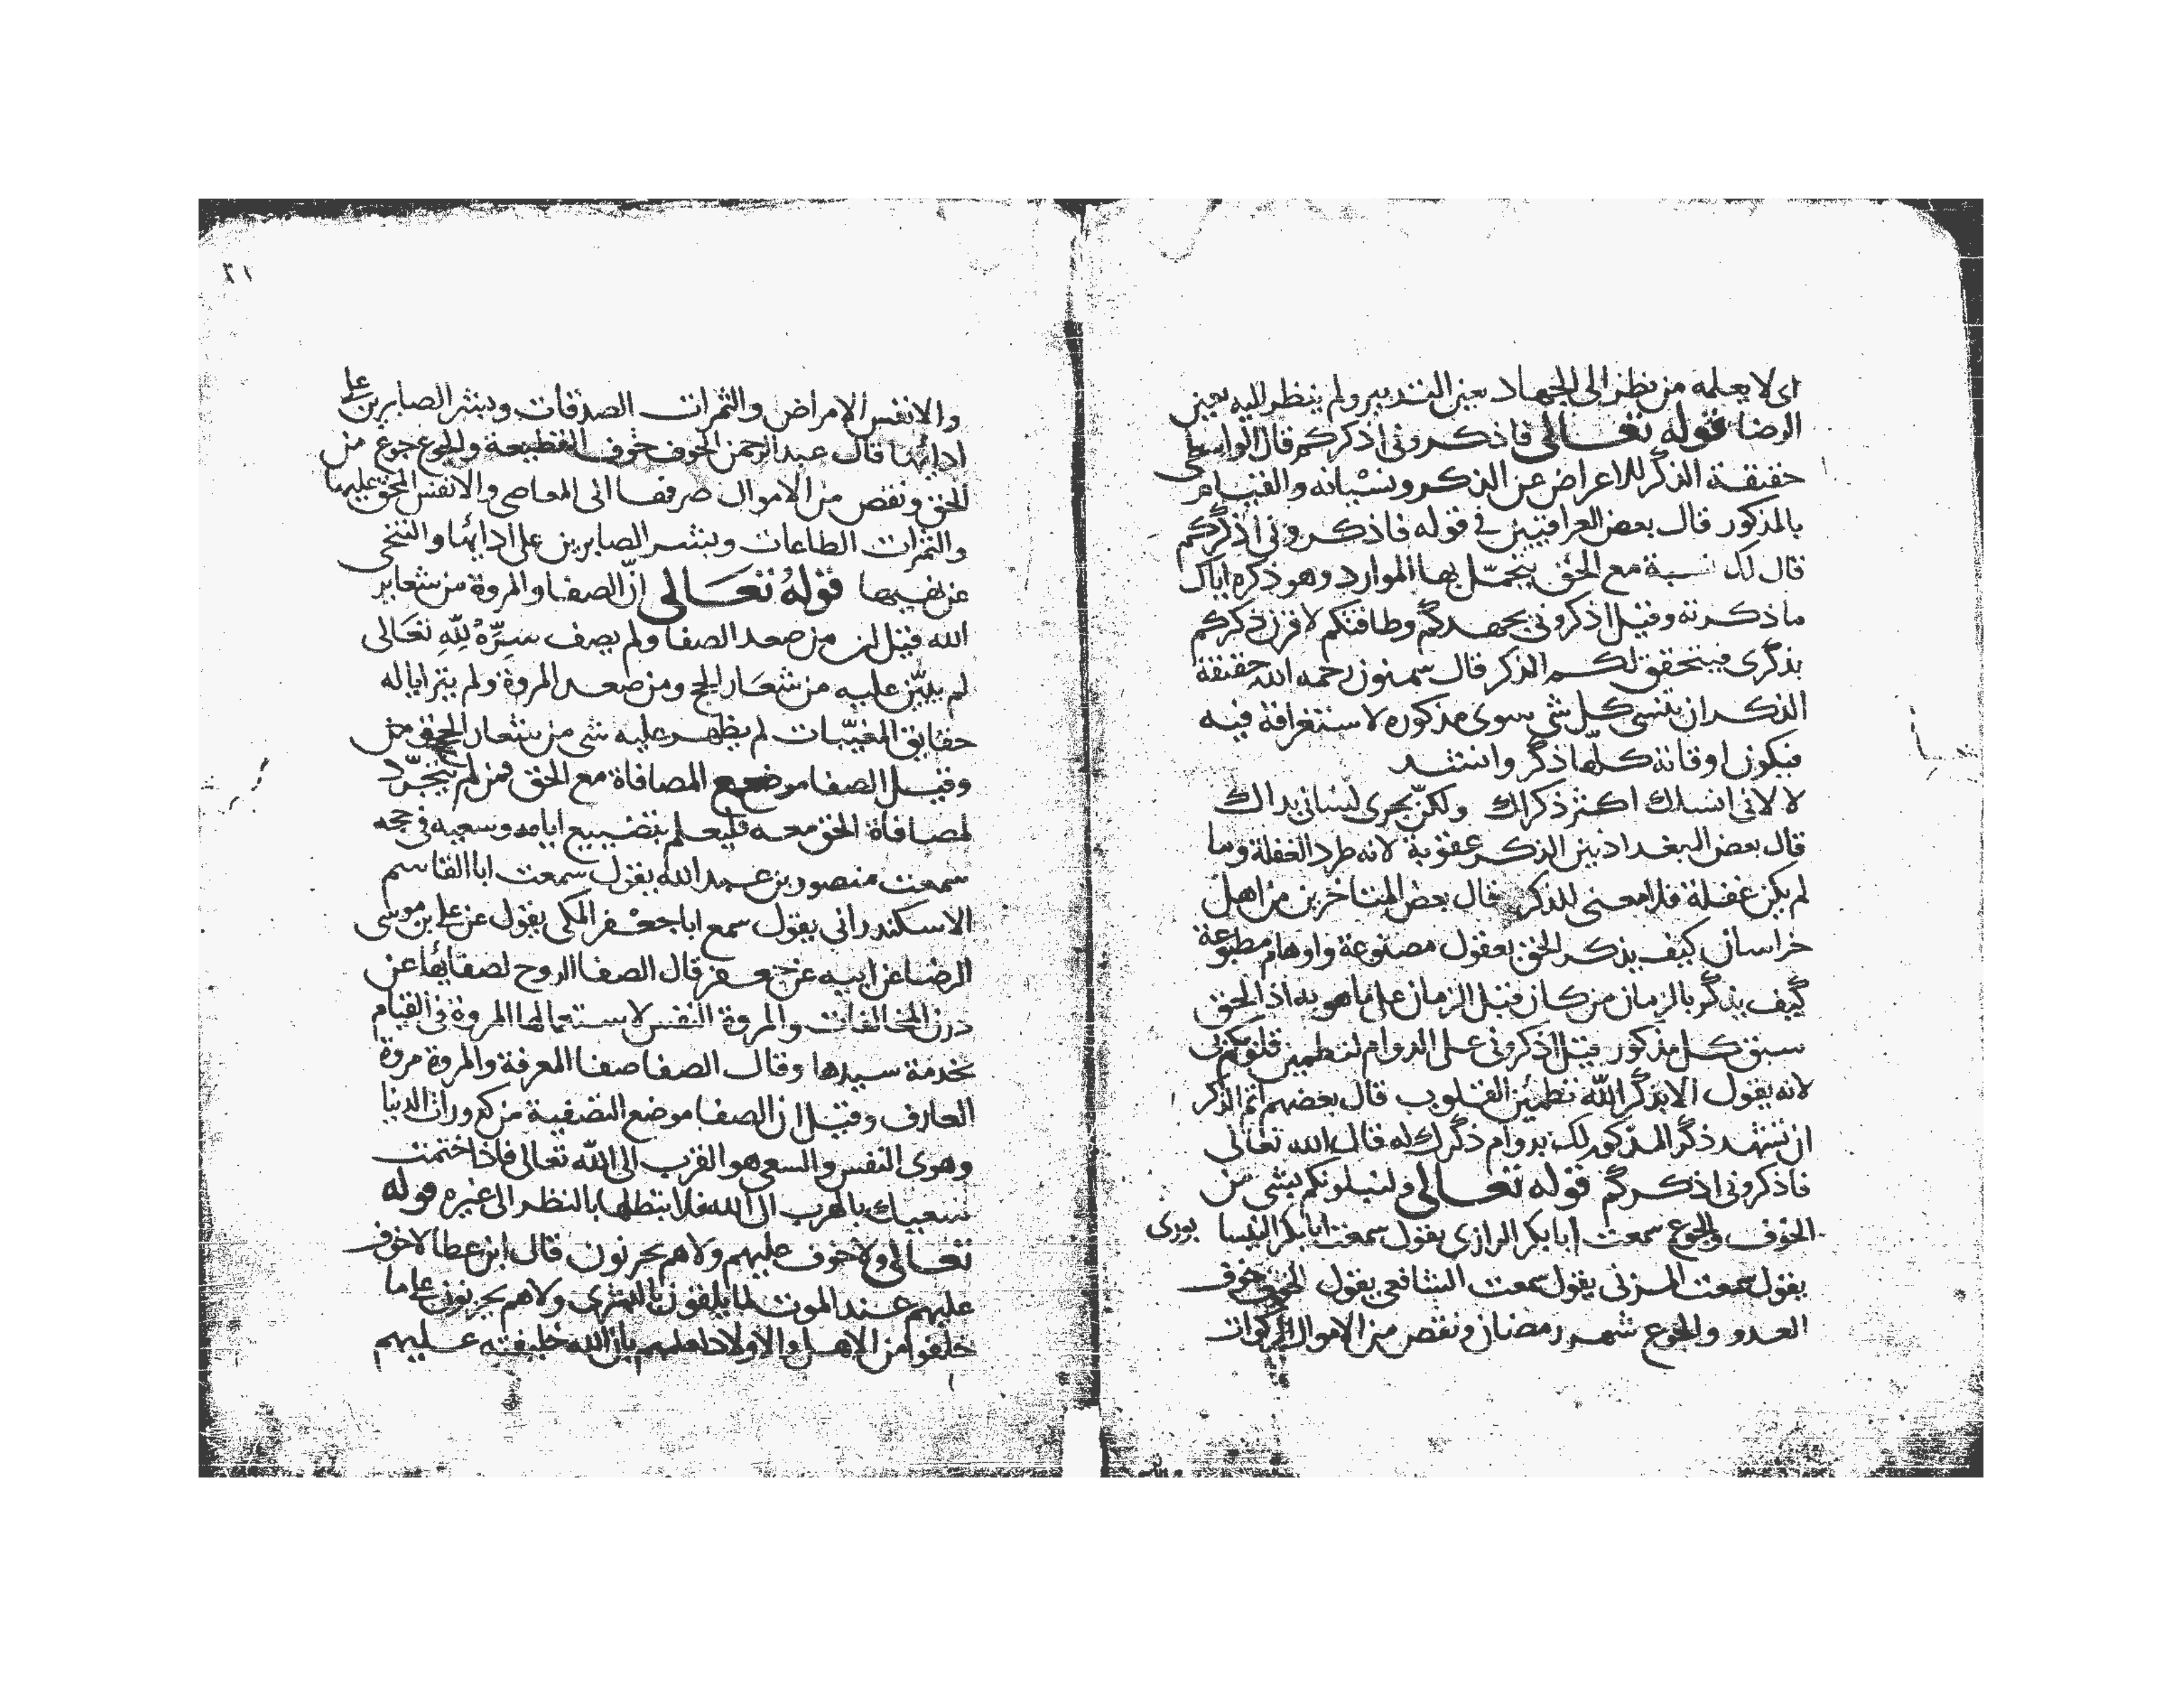 اى لا يعلمه من نظر الى الجهاد بعين التدبير ولم ينظر اليه بعين
الرضا قوله تعالى فاذكرونى اذكركم قال الواسطى
حقيقة الذكر الاعراض عن الذكر ونسيانه والقيام
بالمذكور قال بعض العراقيين فى قوله فاذكرونى اذكركم
قال لك نسبة مع الحق يتحمل بها الموارد وهو ذكره اياك
ما ذكرته وقيل اذكرونى بجهدكم وطاقتكم لاقرن ذكركم
بذكرى فيتحقق لكم الذكر قال سمنون رحمه الله حقيقة
الذكر ان ينسى كل شى سوى مذكوره لاستغراقه فيه
فيكون اوقاته كلها ذكر وانشد
لا لانى انساك اكثر ذكراك ولكن بجرى لسانى بذاك
قال بعض البغداذيين الذكر عقوبة لانه طرد الغفلة وما
لم يكن غفلة فلا معنى للذكر قال بعض المتاخرين من اهل
خراسان كيف يذكر الحق بعقول مصنوعة واوهام مطبوعة
كيف يذكر بالزمان من كان قبل الزمان على ما هو به اذ الحق
سبق كل مذكور قيل اذكرونى على الدوام لتطمين قلوبكم بى
لانه يقول الا بذكر الله تطمئن القلوب قال بعضهم اتم الذكر
ان تشهد ذكر المذكور لك بدوام ذكرك له قال الله تعالى
فاذكرونى اذكركم قوله تعالى ولنبلونكم بشى من
الخوف والجوع سمعت ابا بكر الرازى يقول سمعت ابا بكر النيسابورى
يقول سمعت المزنى يقول سمعت الشافعى يقول الخوف خوف
العدو والجوع شهر رمضان ونقص من الاموال الزكوات
٢١
والانفس الامراض والثمرات الصدقات وبشر الصابرين على
ادائها قال عبد الرحمن الخوف خوف القطيعة والجوع جوع من
الحق ونقص من الاموال صرفها الى المعاصى والانفس المحق عليها
والثمرات الطاعات وبشر الصابرين على ادائها والتنحى
عن نفيها قوله تعالى ان الصفا والمروة من شعاير
الله قيل ان من صعد الصفا ولم يصف سره لله تعالى
لم يتبين عليه من شعار الحج ومن صعد المروة ولم يترايا له
حقايق المغيبات لم يظهر عليه شى من شعار الحق
وقيل الصفا موضع المصافاة مع الحق فمن لم يتجرد
لمصافاة الحق معه فليعلم بتضييع ايامه وسعيه فى حجه
سمعت منصور بن عبد الله يقول سمعت ابا القاسم
الاسكندرانى يقول سمع ابا جعفر الملكى يقول عن على بن موسى
الرضا عن ابيه عن جعفر قال الصفا الروح لصفايها عن
درن المخالفات والمروة النفس لاستعمالها المروة فى القيام
بخدمة سيدها وقال الصفا صفا المعرفة والمروة مروة
العارف وقيل ان الصفا موضع التصفية من كدورات الدنيا
وهوى النفس والسعى هو القرب الى الله تعالى فاذا اختمت
سعيك بالهرب الى الله فلا تبطلها بالنظر الى غيره قوله
تعالى ولا خوف عليهم ولا هم يحزنون قال ابن عطا لا خوف
عليهم عند الموت لما يلقون بالبشرى ولا هم يحزنون على ما
خلفوا من الاهل والاولاد لعلمهم بان الله خليفته عليهم